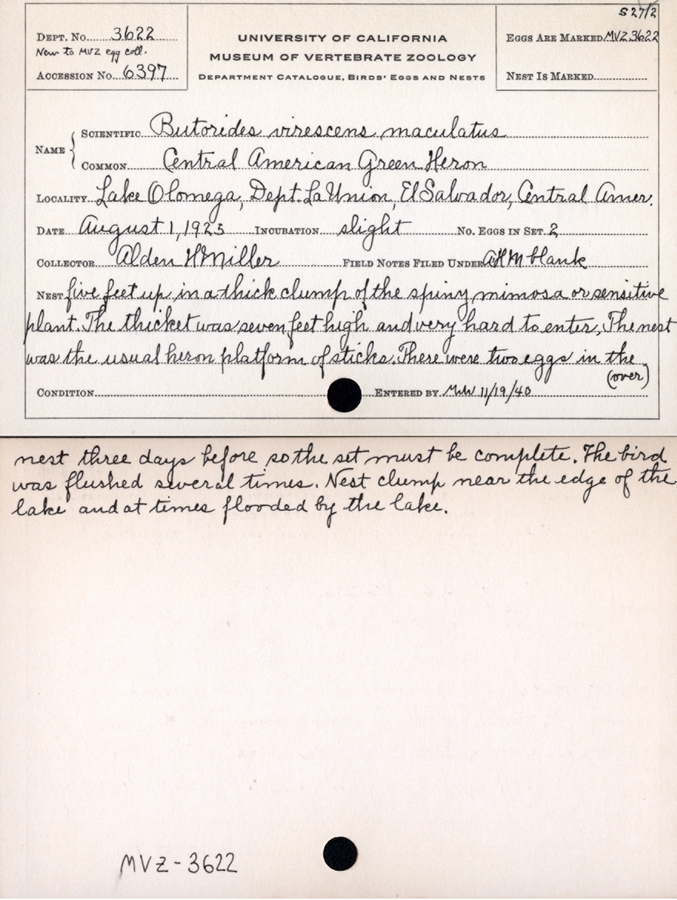 S27/2
DEPT. NO. 3622
New to MVZ egg coll.
ACCESSION NO. 6397
UNIVERSITY OF CALIFORNIA
MUSEUM OF VERTEBRATE ZOOLOGY
DEPARTMENT CATALOGUE, BIRDS' EGGS AND NESTS
EGGS ARE MARKED MVZ 3622
NEST IS MARKED
NAME { SCIENTIFIC Butorides virescens maculatus
COMMON Central American Green Heron
LOCALITY Lake Olomega, Dept. La Union, El Salvador, Central Amer.
DATE August 1, 1925 INCUBATION slight NO. EGGS IN SET 2
COLLECTOR Alden H Miller FIELD NOTES FILED UNDER AHM blank
NEST five feet up in a thick clump of the spiny mimosa or sensitive
plant. The thicket was seven feet high and very hard to enter. The nest
was the usual heron platform of sticks. There were two eggs in the
(over)
CONDITION ENTERED BY MWW 11/19/40
nest three days before so the set must be complete. The bird
was flushed several times. Nest clump near the edge of the
lake and at times flooded by the lake.
MVZ-3622